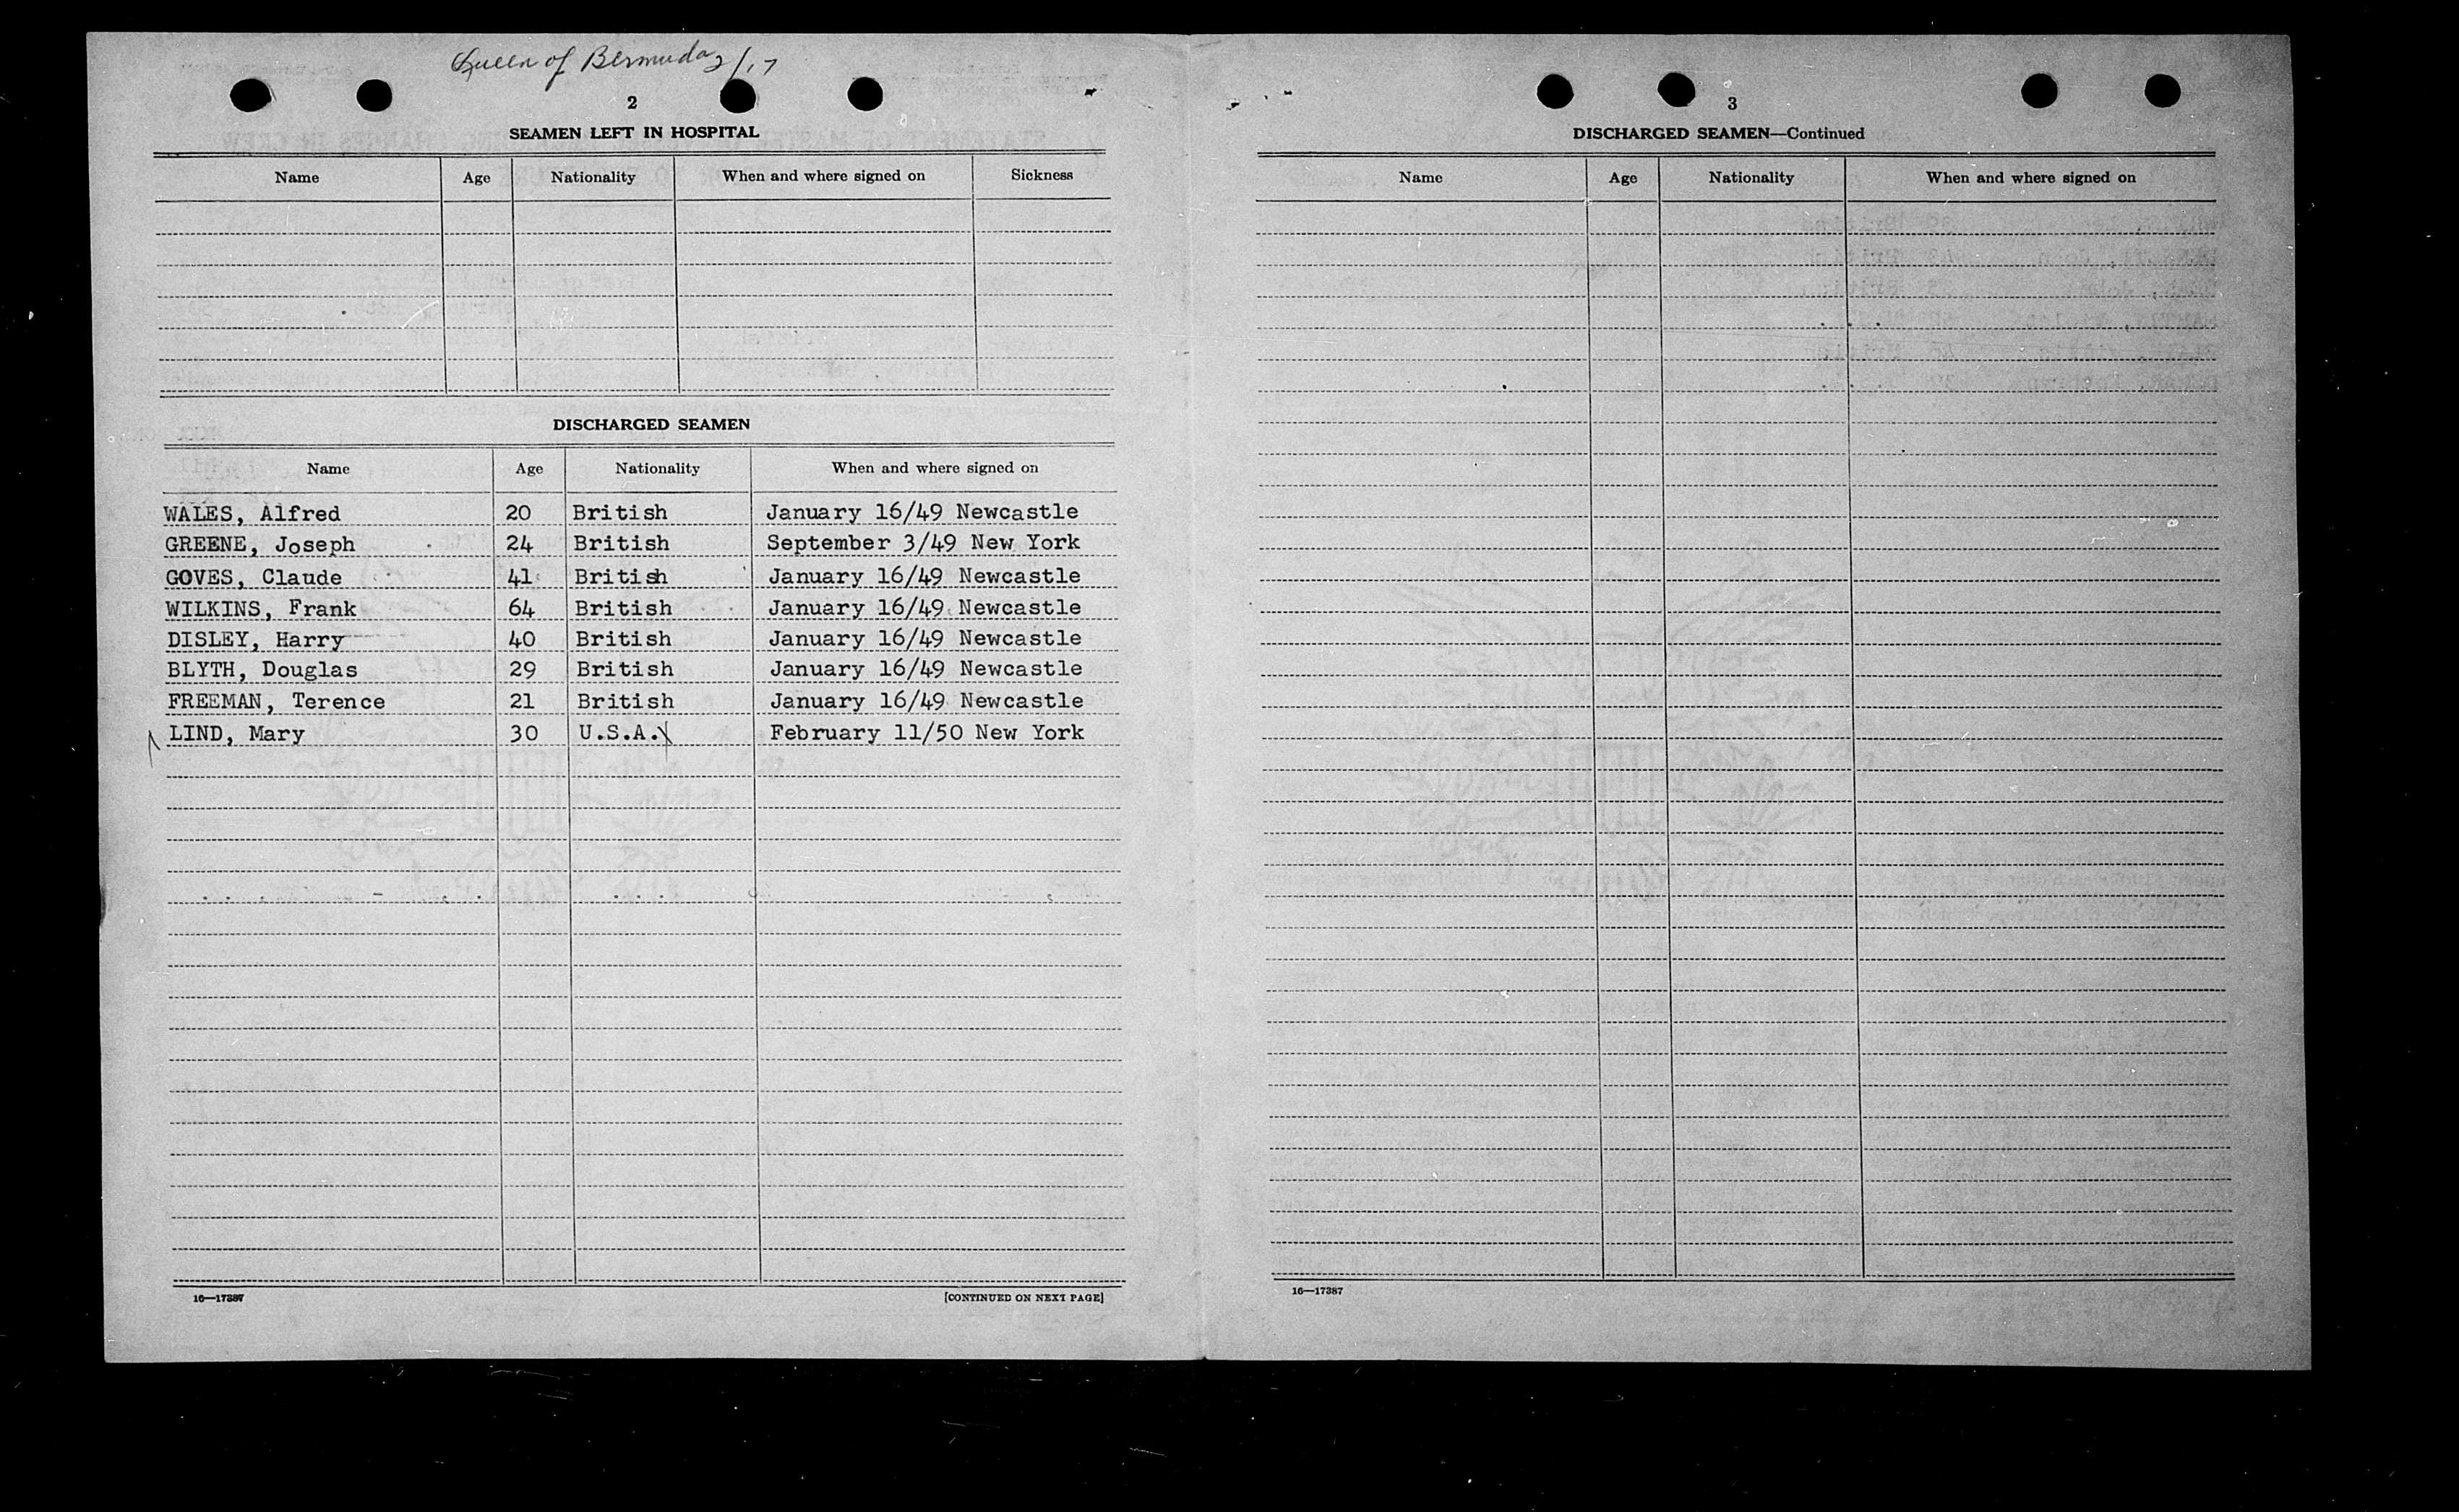 Queen of Bermuda 2/17
2
SEAMEN LEFT IN HOSPITAL
Name Age Nationality When and where signed on Sickness
DISCHARGED SEAMEN
Name Age Nationality When and where signed on
WALES, Alfred 20 British January 16/49 Newcastle
GREENE, Joseph 24 British September 3/49 New York
GOVES, Claude 41 British January 16/49 Newcastle
WILKINS, Frank 64 British January 16/49 Newcastle
DISLEY, Harry 40 British January 16/49 Newcastle
BLYTH, Douglas 29 British January 16/49 Newcastle
FREEMAN, Terence 21 British January 16/49 Newcastle
LIND, Mary 30 U.S.A. February 11/50 New York
16—17387 [CONTINUED ON NEXT PAGE]
3
DISCHARGED SEAMEN—Continued
Name Age Nationality When and where signed on
16—17387